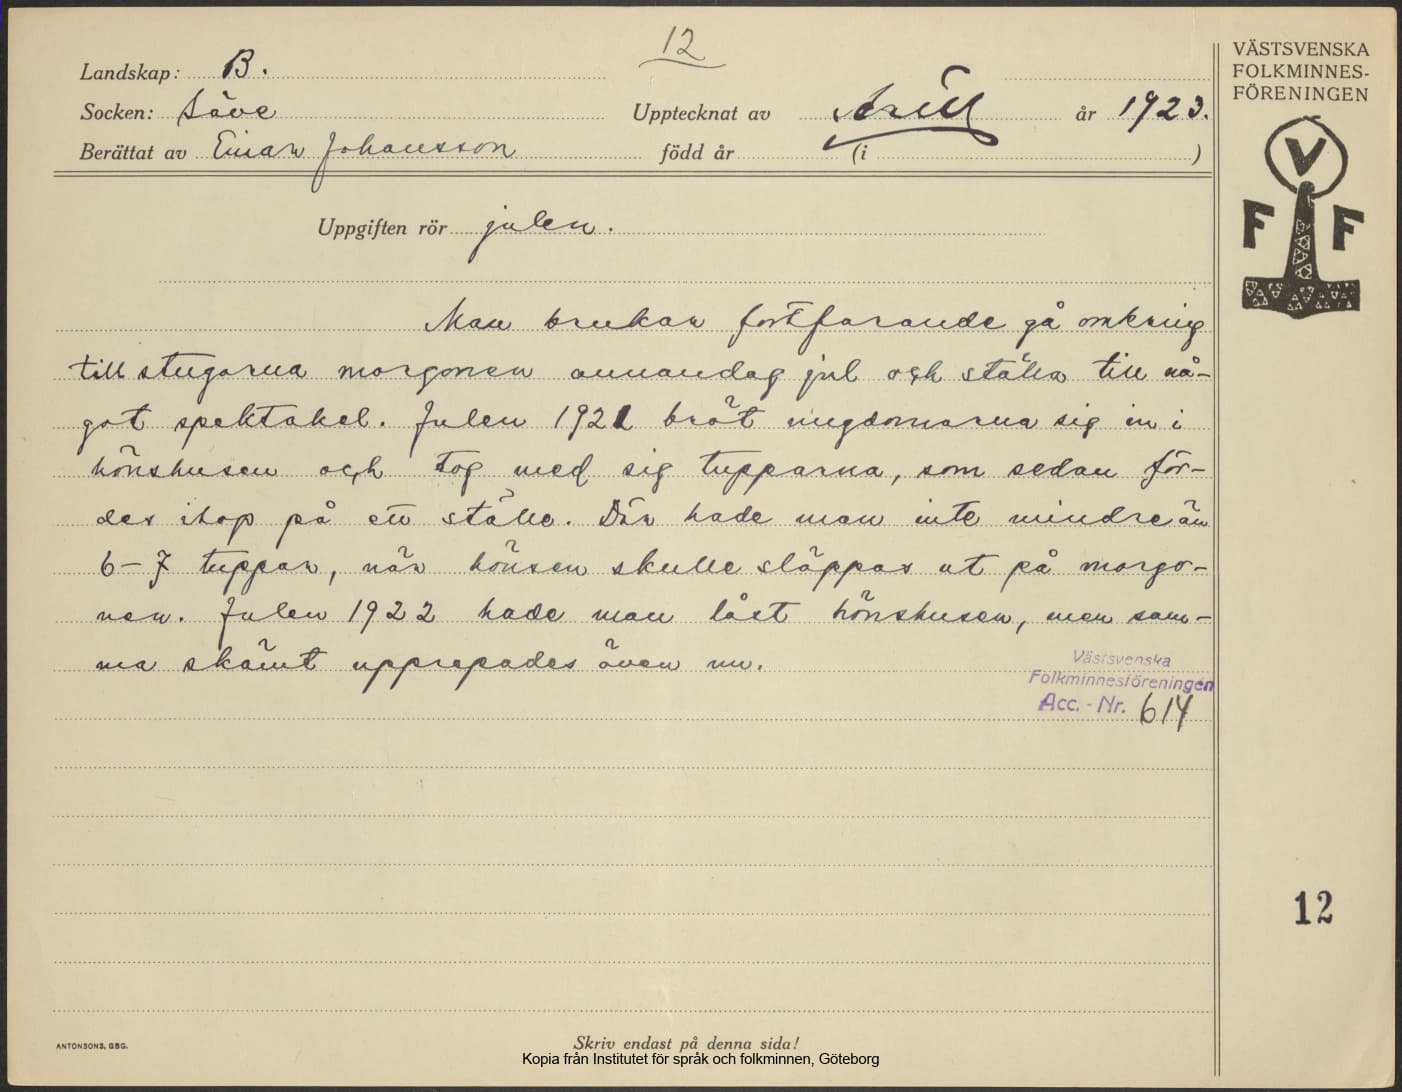 12
Landskap: B.
Socken: Säve
Upptecknat av
år 1923.
Berättat av Einar Johansson
född år
(i )
Uppgiften rör julen.
Man brukar fortfarande gå omkring
till stugorna morgonen annandag jul och ställa till nå-
got spektakel. Julen 1921 bröt ungdomarna sig in i
hönshusen och tog med sig tupparna, som sedan för-
des ihop på ett ställe. Där hade man inte mindre än
6-7 tuppar, när hönsen skulle släppas ut på morgo-
nen. Julen 1922 hade man låst hönshusen, men sam-
ma skämt upprepades även nu.
Västsvenska
Folkminnesföreningen
Acc. - Nr. 614
VÄSTSVENSKA
FOLKMINNES-
FÖRENINGEN
V
F F
12
ANTONSONS, GBG.
Skriv endast på denna sida!
Kopia från Institutet för språk och folkminnen, Göteborg